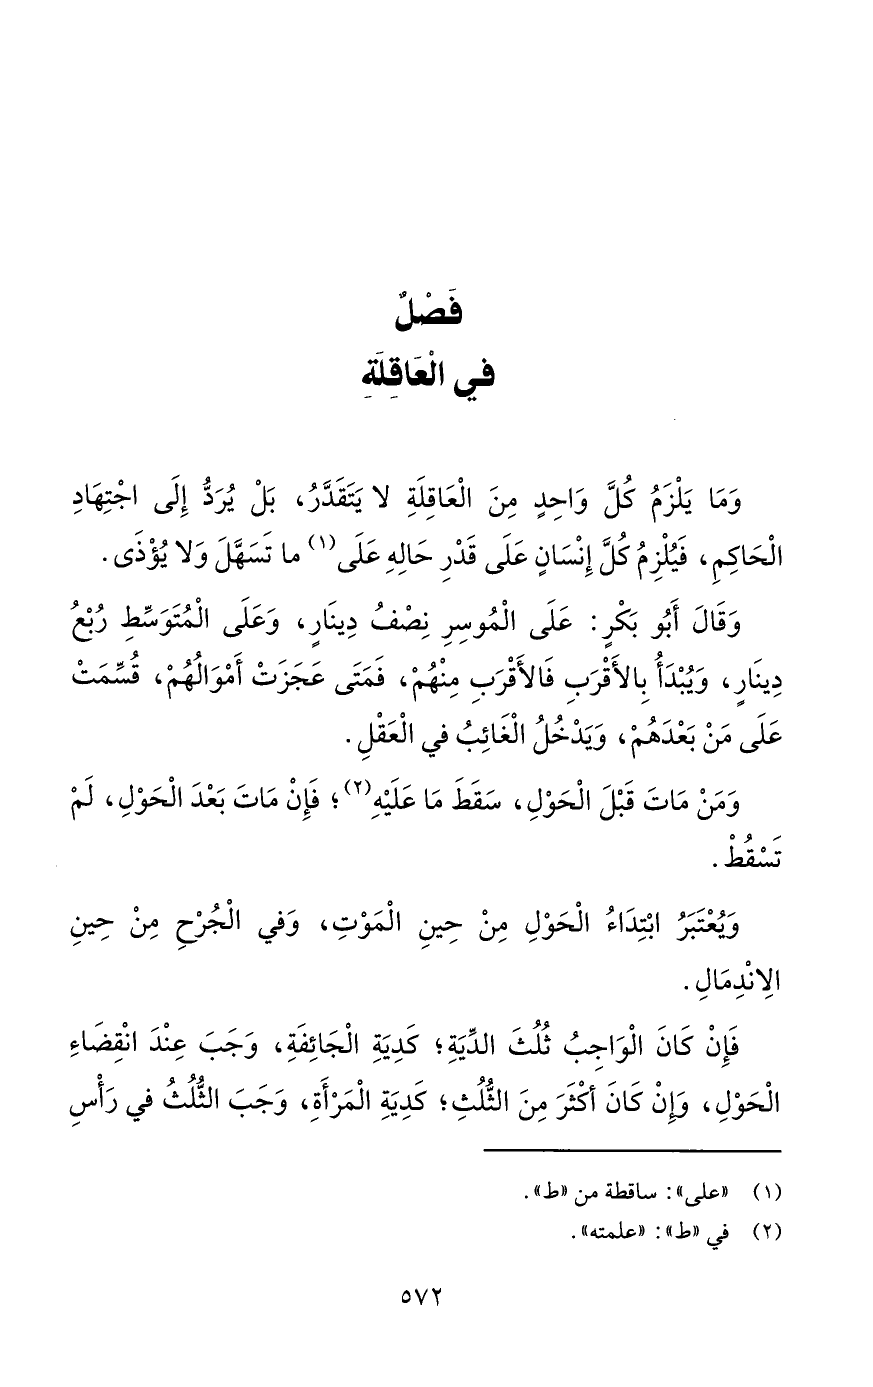 فَصْلٌ
فِي الْعَاقِلَةِ
وَمَا يَلْزَمُ كُلَّ وَاحِدٍ مِنَ الْعَاقِلَةِ لا يَتَقَدَّرُ، بَلْ يُرَدُّ إِلَى اجْتِهَادِ
الْحَاكِمِ، فَيُلْزِمُ كُلَّ إِنْسَانٍ عَلَى قَدْرِ حَالِهِ عَلَى(١) ما تَسَهَّلَ وَلا يُؤْذَى.
وَقَالَ أَبُو بَكْرٍ: عَلَى الْمُوسِرِ نِصْفُ دِينَارٍ، وَعَلَى الْمُتَوَسِّطِ رُبْعُ
دِينَارٍ، وَيُبْدَأُ بِالأَقْرَبِ فَالأَقْرَبِ مِنْهُمْ، فَمَتَى عَجَزَتْ أَمْوَالُهُمْ، قُسِّمَتْ
عَلَى مَنْ بَعْدَهُمْ، وَيَدْخُلُ الْغَائِبُ في الْعَقْلِ.
وَمَنْ مَاتَ قَبْلَ الْحَوْلِ، سَقَطَ مَا عَلَيْهِ(٢)؛ فَإِنْ مَاتَ بَعْدَ الْحَوْلِ، لَمْ
تَسْقُطْ.
وَيُعْتَبَرُ ابْتِدَاءُ الْحَوْلِ مِنْ حِينِ الْمَوْتِ، وَفي الْجُرْحِ مِنْ حِينِ
الِانْدِمَالِ.
فَإِنْ كَانَ الْوَاجِبُ ثُلُثَ الدِّيَةِ؛ كَدِيَةِ الْجَائِفَةِ، وَجَبَ عِنْدَ انْقِضَاءِ
الْحَوْلِ، وَإِنْ كَانَ أَكْثَرَ مِنَ الثُّلُثِ؛ كَدِيَةِ الْمَرْأَةِ، وَجَبَ الثُّلُثُ في رَأْسِ
(١) «على»: ساقطة من «ط».
(٢) في «ط»: «علمته».
٥٧٢